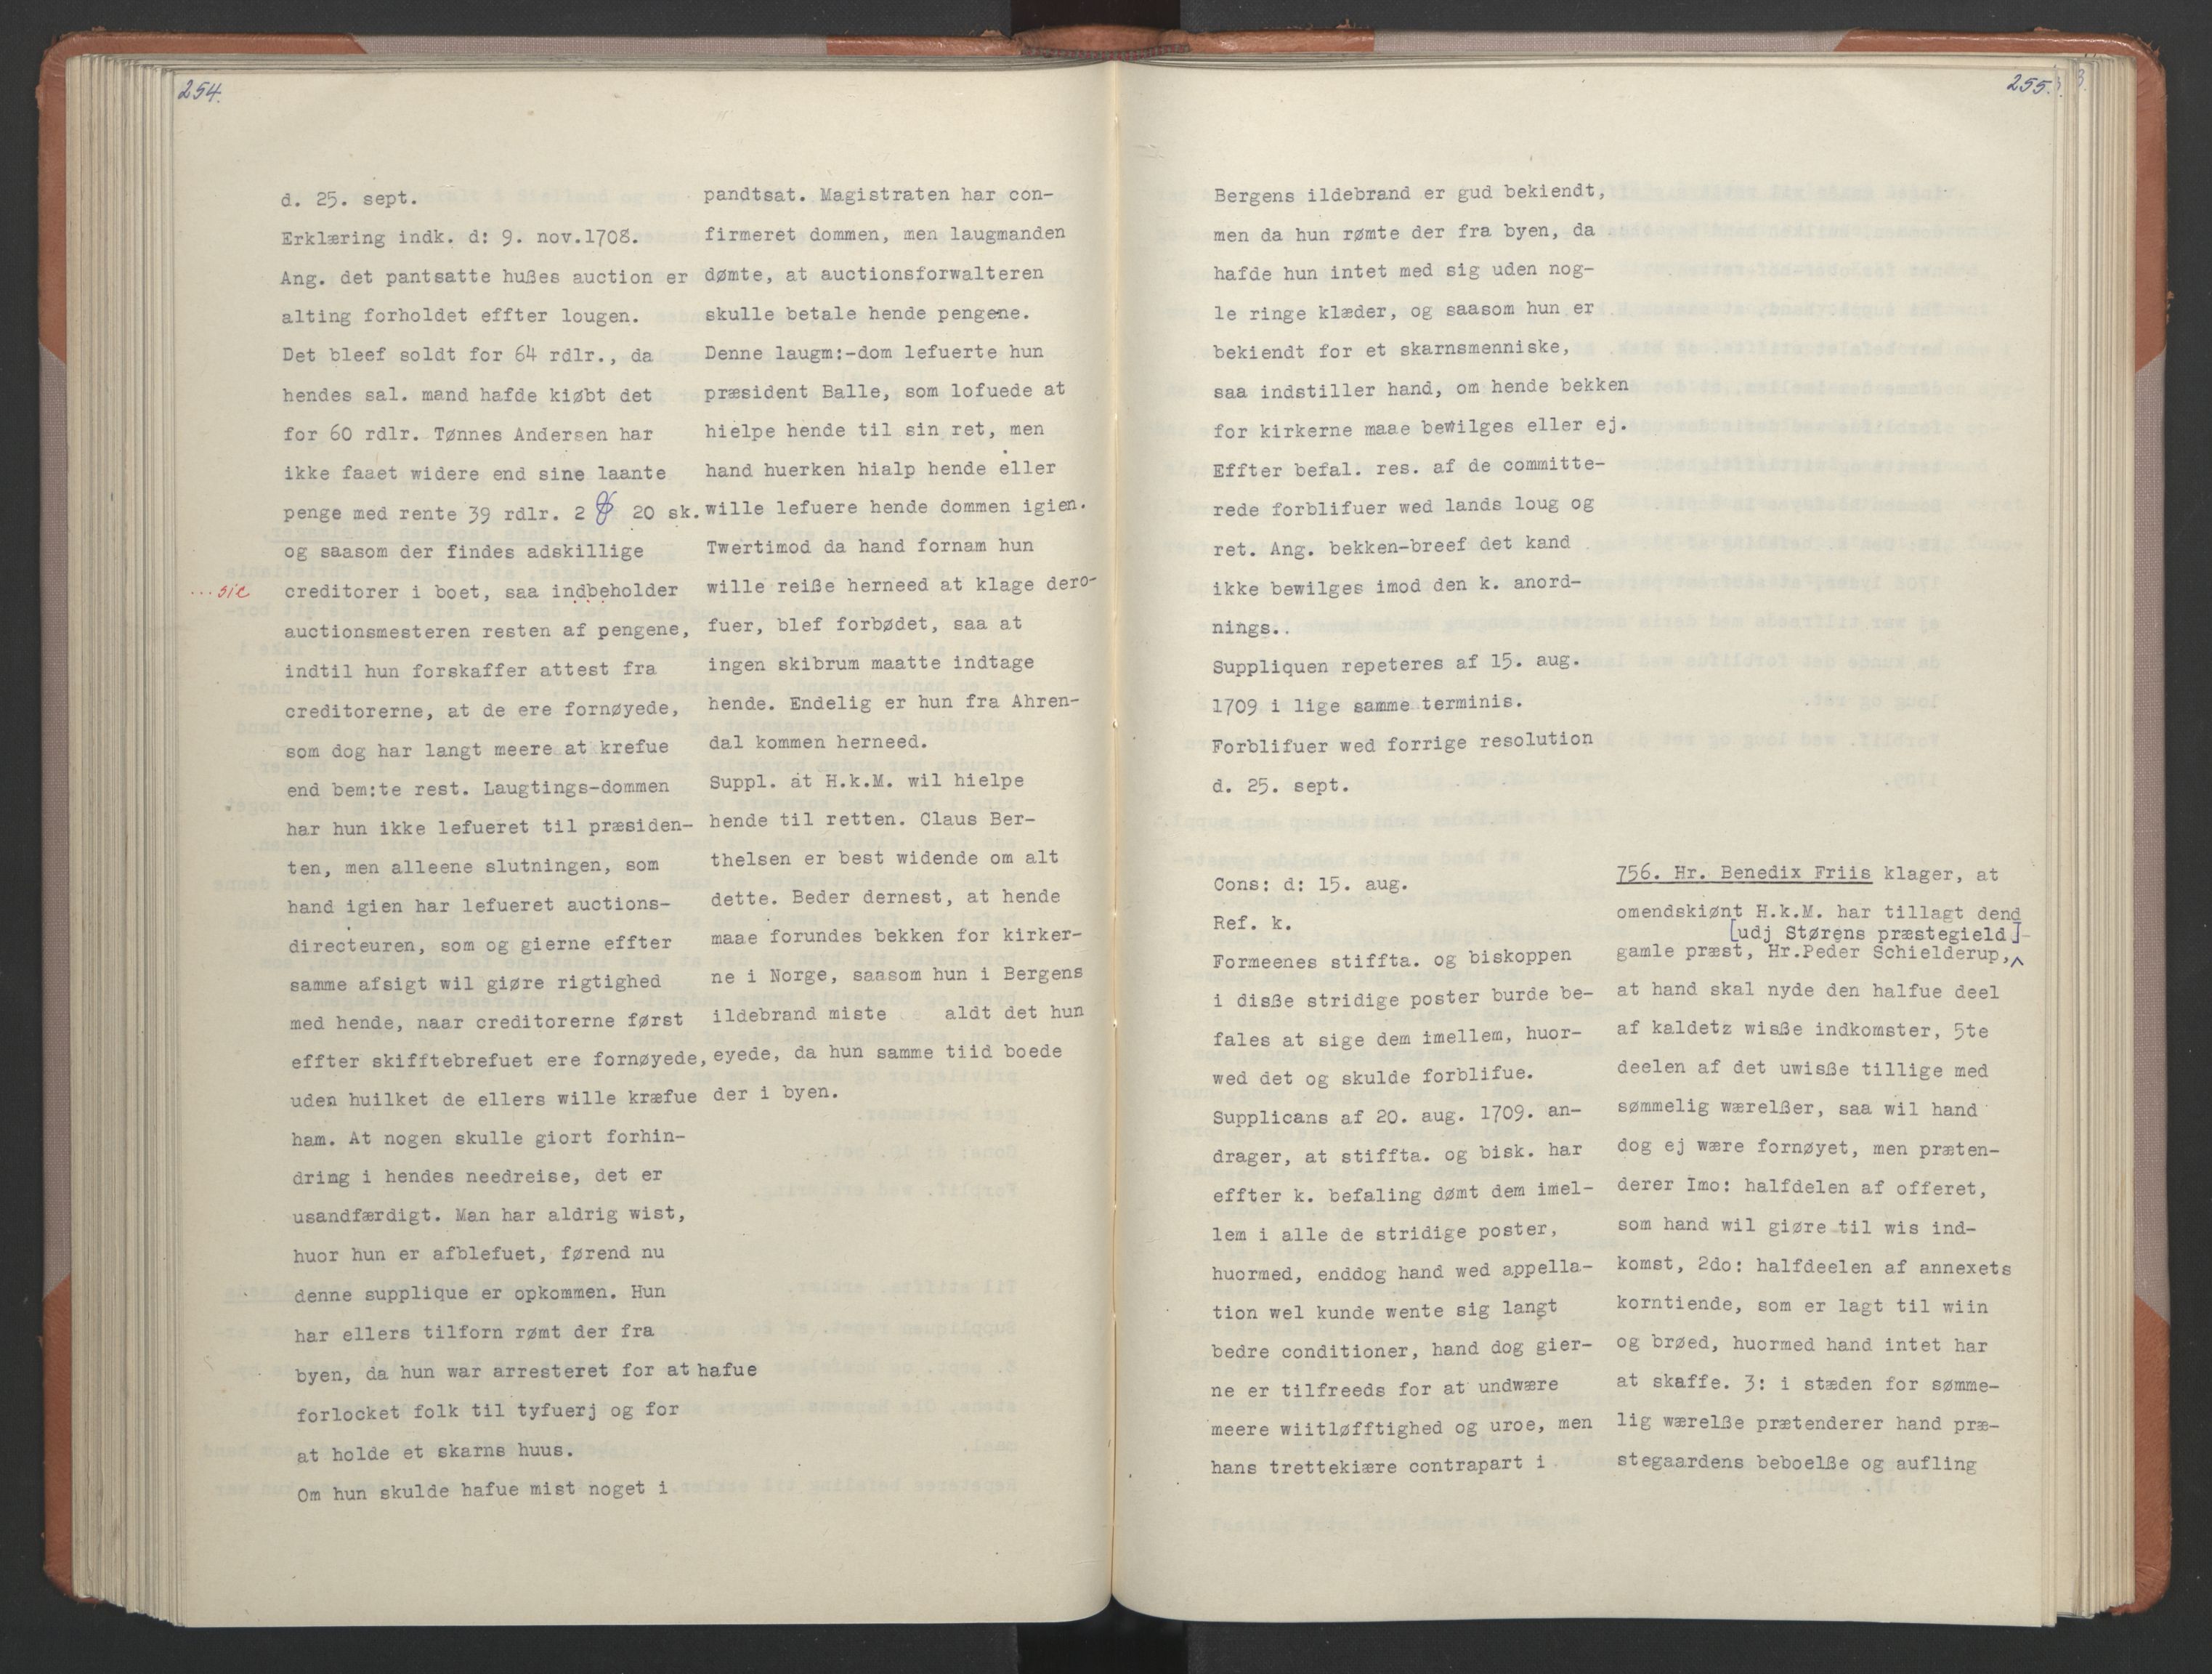 254.
d. 25. sept.
Erklæring indk. d: 9. nov.1708.
Ang. det pantsatte hußes auction er
alting forholdet effter lougen.
Det bleef soldt for 64 rdlr., da
hendes sal. mand hafde kiøbt det
for 60 rdlr. Tønnes Andersen har
ikke faaet widere end sine laante
penge med rente 39 rdlr. 2 20 sk.
og saasom der findes adskillige
...sic creditorer i boet, saa indbeholder
auctionsmesteren resten af pengene,
indtil hun forskaffer attest fra
creditorerne, at de ere fornøyede,
som dog har langt meere at krefue
end bem:te rest. Laugtings-dommen
har hun ikke lefueret til præsiden-
ten, men alleene slutningen, som
hand igien har lefueret auctions-
directeuren, som og gierne effter
samme afsigt wil giøre rigtighed
med hende, naar creditorerne først
effter skifftebrefuet ere fornøyede,
uden huilket de ellers wille kræfue
ham. At nogen skulle giort forhin-
dring i hendes needreise, det er
usandfærdigt. Man har aldrig wist,
huor hun er afblefuet, førend nu
denne supplique er opkommen. Hun
har ellers tilforn rømt der fra
byen, da hun war arresteret for at hafue
forlocket folk til tyfuerj og for
at holde et skarns huus.
Om hun skulde hafue mist noget i
pandtsat. Magistraten har con-
firmeret dommen, men laugmanden
dømte, at auctionsforwalteren
skulle betale hende pengene.
Denne laugm:-dom lefuerte hun
præsident Balle, som lofuede at
hielpe hende til sin ret, men
hand huerken hialp hende eller
wille lefuere hende dommen igien.
Twertimod da hand fornam hun
wille reiße herneed at klage dero-
fuer, blef forbødet, saa at
ingen skibrum maatte indtage
hende. Endelig er hun fra Ahren-
dal kommen herneed.
Suppl. at H.k.M. wil hielpe
hende til retten. Claus Ber-
thelsen er best widende om alt
dette. Beder dernest, at hende
maae forundes bekken for kirker-
ne i Norge, saasom hun i Bergens
ildebrand miste aldt det hun
eyede, da hun samme tiid boede
der i byen.
255.
Bergens ildebrand er gud bekiendt,
men da hun rømte der fra byen, da
hafde hun intet med sig uden nog-
le ringe klæder, og saasom hun er
bekiendt for et skarnsmenniske,
saa indstiller hand, om hende bekken
for kirkerne maae bewilges eller ej.
Effter befal. res. af de committe-
rede forblifuer wed lands loug og
ret. Ang. bekken-breef det kand
ikke bewilges imod den k. anord-
nings..
Suppliquen repeteres af 15. aug.
1709 i lige samme terminis.
Forblifuer wed forrige resolution
d. 25. sept.
Cons: d: 15. aug.
Ref. k.
Formeenes stiffta. og biskoppen
i disße stridige poster burde be-
fales at sige dem imellem, huor-
wed det og skulde forblifue.
Supplicans af 20. aug. 1709. an-
drager, at stiffta. og bisk. har
effter k. befaling dømt dem imel-
lem i alle de stridige poster,
huormed, enddog hand wed appella-
tion wel kunde wente sig langt
bedre conditioner, hand dog gier-
ne er tilfreeds for at undwære
meere wiitløfftighed og uroe, men
hans trettekiære contrapart i
756. Hr. Benedix Friis klager, at
omendskiønt H.k.M. har tillagt dend
[udj Størens præstegield]
gamle præst, Hr.Peder Schielderup,
at hand skal nyde den halfue deel
af kaldetz wisße indkomster, 5te
deelen af det uwisße tillige med
sømmelig wærelßer, saa wil hand
dog ej wære fornøyet, men præten-
derer Imo: halfdelen af offeret,
som hand wil giøre til wis ind-
komst, 2do: halfdeelen af annexets
korntiende, som er lagt til wiin
og brøed, huormed hand intet har
at skaffe. 3: i stæden for sømme-
lig wærelße prætenderer hand præ-
stegaardens beboelße og aufling